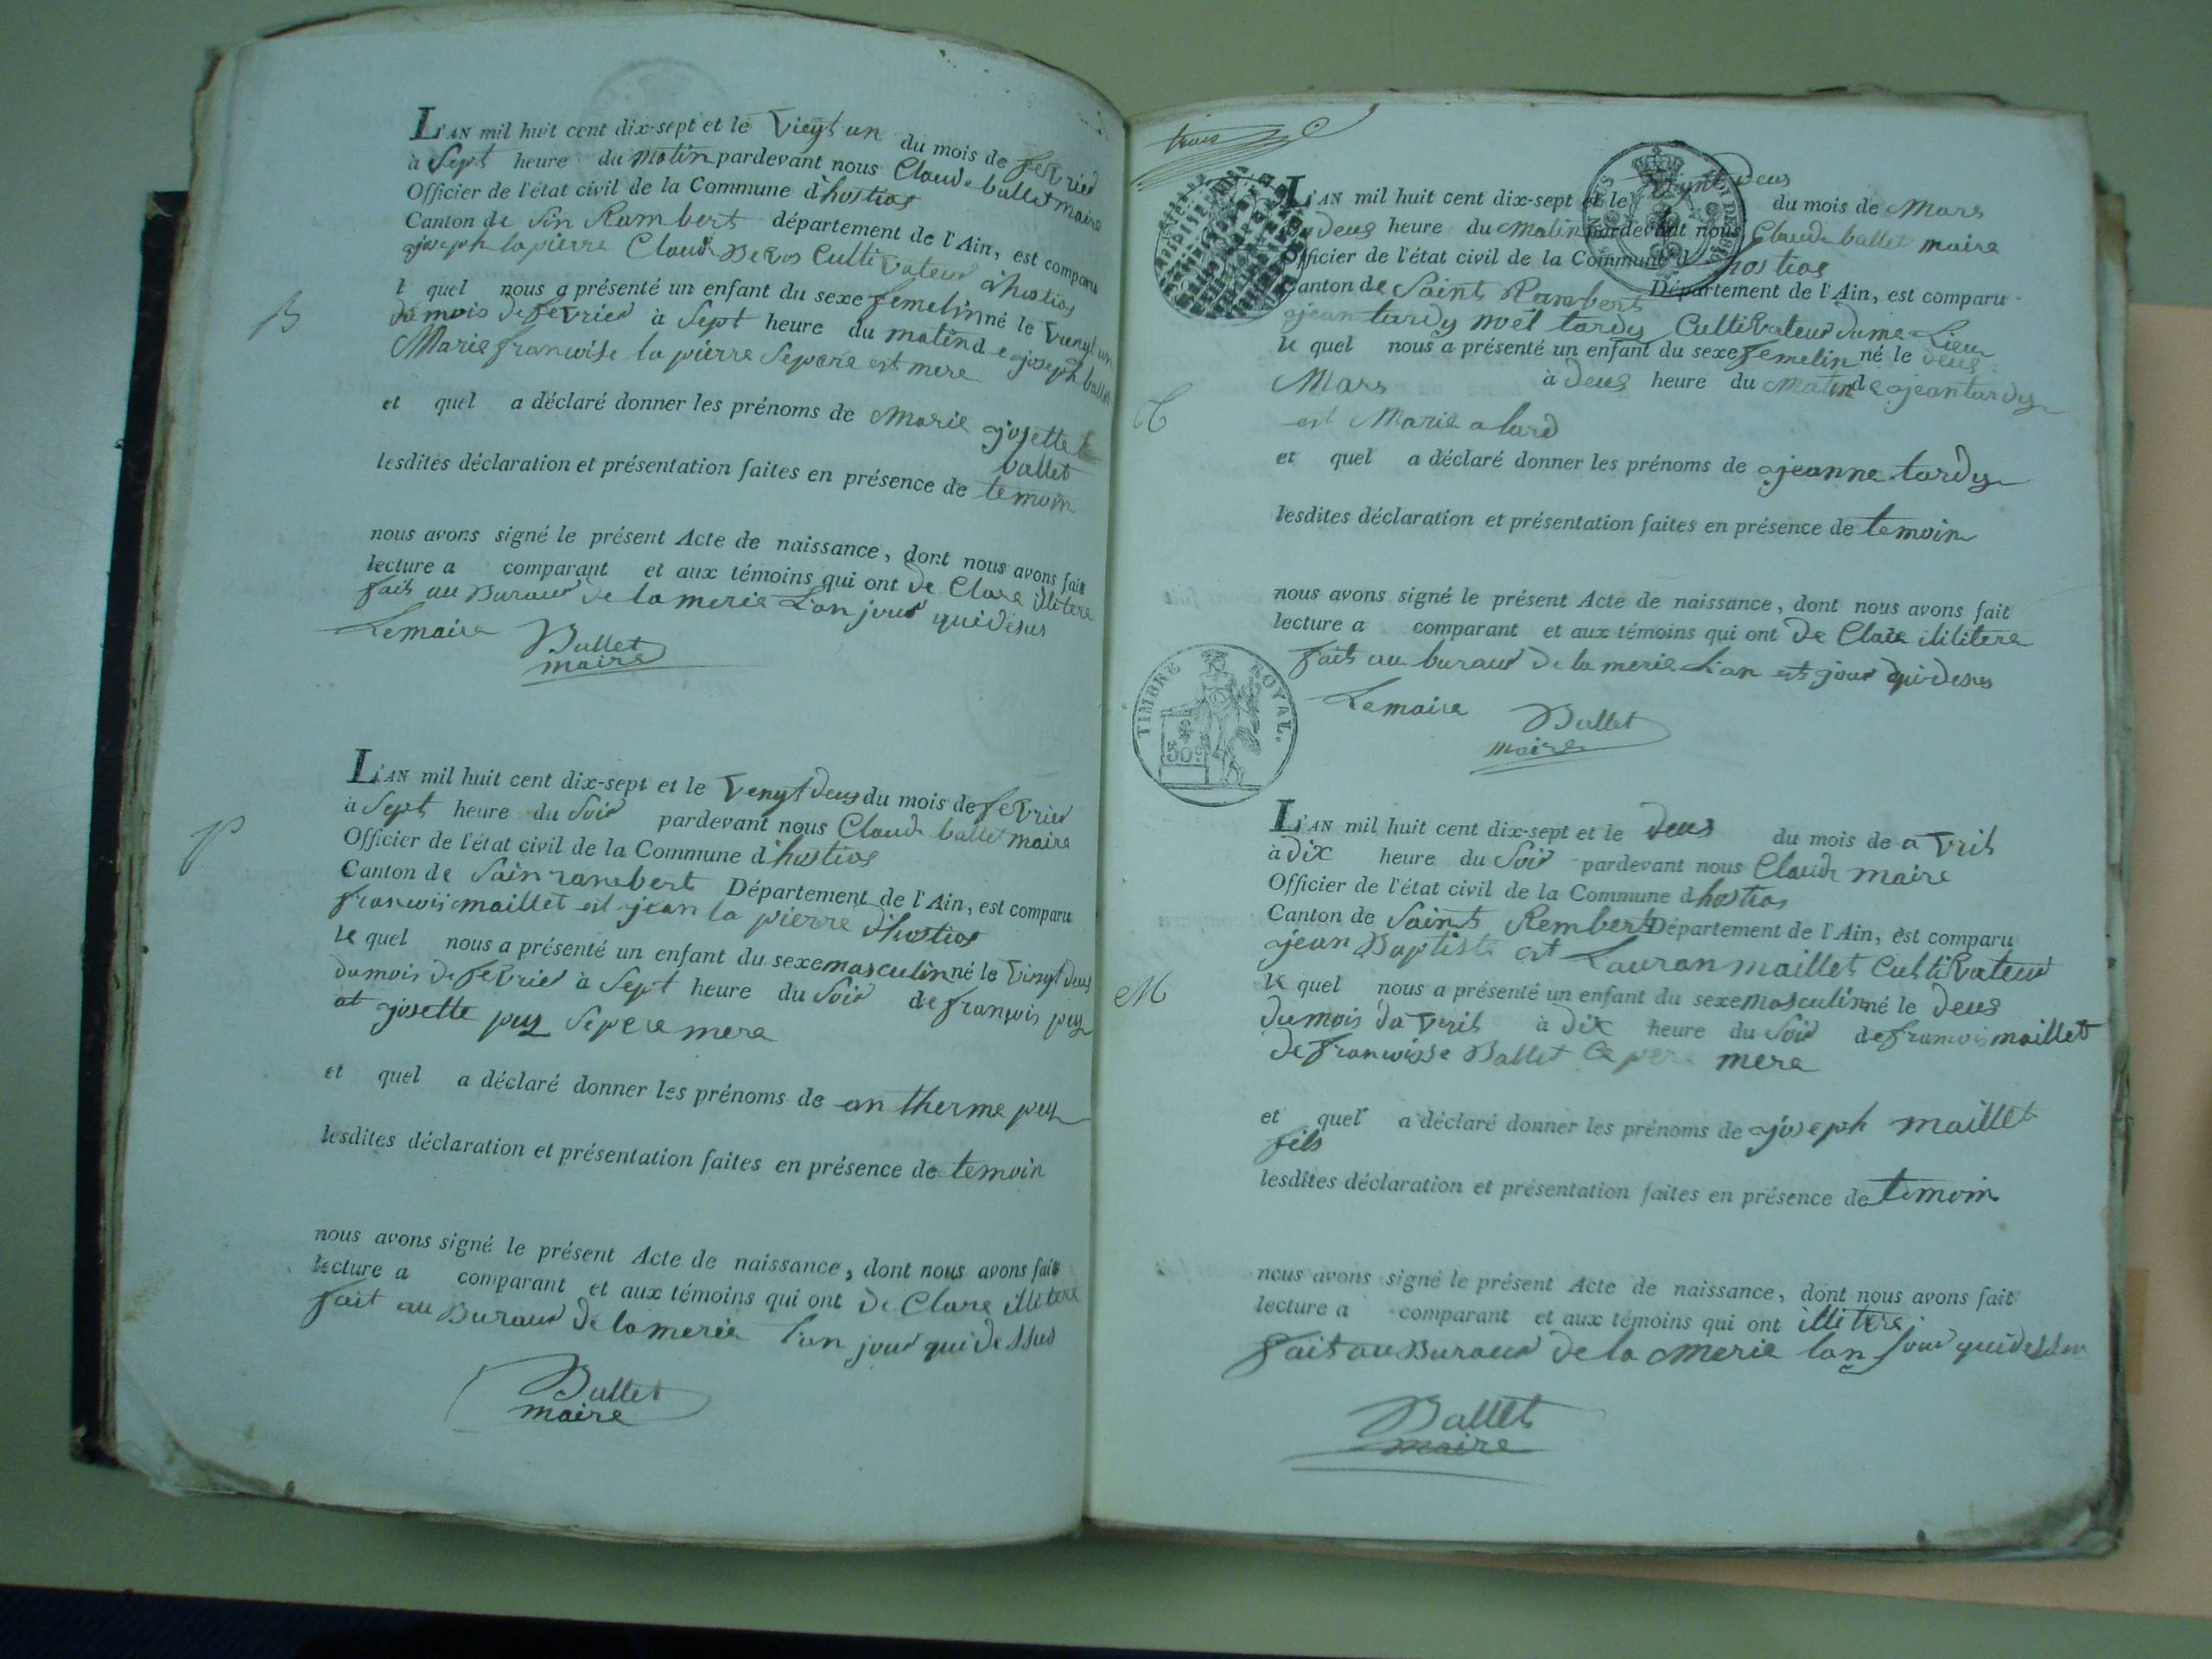 L'AN mil huit cent dix-sept et le Vieyt un du mois de fevried
à Sept heure du Matin pardevant nous Claude ballet maire
Officier de l'état civil de la Commune d'hostias
Canton de Sin Rambert département de l'Ain, est comparu
ajoseph lapierre Claud Cultivateud ahostias
l quel nous a présenté un enfant du sexe femelin né le
du mois de fevried à Sept heure du matin de ajoseph ballet
Marie franwise la pierre Sepere est mere
B
et quel a déclaré donner les prénoms de Marie ajosette
ballet
lesdites déclaration et présentation faites en présence de temoin
nous avons signé le présent Acte de naissance, dont nous avons fait
lecture a comparant et aux témoins qui ont de Clare illitere
fait au Buraud de la merie L'an joud quidesus
Lemaire Ballet
maire
L'AN mil huit cent dix-sept et le Venyt deus du mois de fevried
à Sept heure du Soid pardevant nous Claude ballet maire
P
Officier de l'état civil de la Commune d'hostias
Canton de Sainrambert Département de l'Ain, est comparu
franwis maillet est jean la pierre d'hostias
le quel nous a présenté un enfant du sexe masculin né le Vingt deus
du mois de fevried à Sept heure du Soid de françois pey
et ajosette pey Sepere mere
et quel a déclaré donner les prénoms de an therme pey
lesdites déclaration et présentation faites en présence de temoin
nous avons signé le présent Acte de naissance, dont nous avons fait
lecture a comparant et aux témoins qui ont de Clare illitere
fait au Buraud de la merie l'an joud qui dessus
Ballet
maire
trois
L'AN mil huit cent dix-sept et le vint deus du mois de Mars
à deus heure du Matin pardevant nous Claude ballet maire
Officier de l'état civil de la Commune d hostias
Canton de Saint Rambert Département de l'Ain, est comparu
ajean tardy noël tardy Cultivateud dume Lieu
le quel nous a présenté un enfant du sexe femelin né le deus
Mars à deus heure du Matin de ajean tardy
est Marie alard
T
et quel a déclaré donner les prénoms de ajeanne tardy
lesdites déclaration et présentation faites en présence de temoin
nous avons signé le présent Acte de naissance, dont nous avons fait
lecture a comparant et aux témoins qui ont de Clare ililitere
fait au buraud de la merie L'an est joud quidesus
TIMBRE ROYAL.
50c
Lemaire Ballet
maire
L'AN mil huit cent dix-sept et le deus du mois de avril
à dix heure du Soid pardevant nous Claude maire
Officier de l'état civil de la Commune d hostias
Canton de Saint Rembert Département de l'Ain, est comparu
ajean Baptiste est Lauran maillet Cultivateud
le quel nous a présenté un enfant du sexe masculin né le deus
du mois davril à dix heure du Soid de franwis maillet
de franwisse Ballet Ce pere mere
M
et quel a déclaré donner les prénoms de ajoseph maillet
fils
lesdites déclaration et présentation faites en présence de temoin
nous avons signé le présent Acte de naissance, dont nous avons fait
lecture a comparant et aux témoins qui ont illitere
fait au Buraud de la Merie lan joud quidessu
Ballet
maire